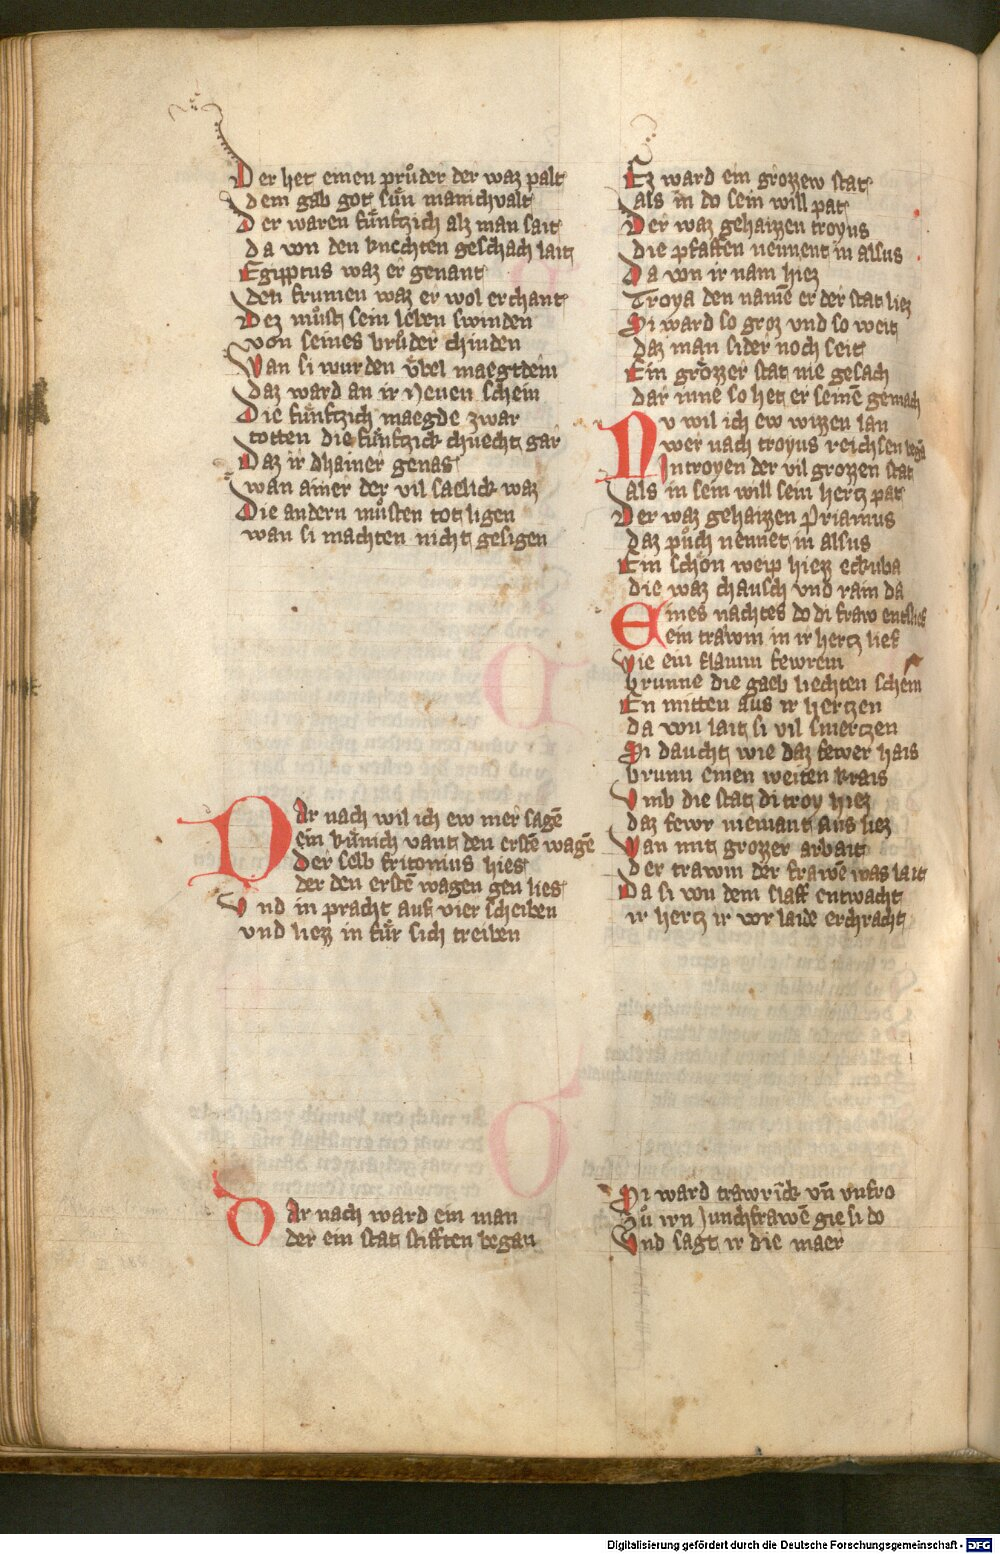 Der het einen pruͦder der waz palt
dem gab got suͤn manichvalt
Der waren fuͤnfzich alz man sait
da von den knechten geschach lait
Egyptus waz er genant
den frumen waz er wol erchant
Dez muͦst sein leben swinden
von seines bruͦder chinden
Wan si wurden vͤbel maegtdein
daz ward an ir neuen schein
Die fuͤnfzich maegde zwar
totten die fuͤnfzick chnecht gar
Daz ir dhainer genas
wan ainer der vil saelick waz
Die andern muͦsten tot ligen
wan si machten nicht gesigen
DAr nach wil ich ew mer sagē
ein kuͤnich vant den erstē wagē
Der selb fritonius hies
der den erstē wagen gen lies
Vnd in pracht auf vier scheiben
vnd liezz in fuͤr sich treiben
DAr nach ward ein man
der ein stat stifften began
Ez ward ein grozzew stat
als in do sein will pat
Der waz gehaizzen troyus
die pfaffen nennent in alsus
Da von ir nam hiez
Troya den namē er der stat liez
Si ward so groz vnd so weit
daz man sider noch seit
Ein grözzer stat nie gesach
dar inne so het er seinē gemach
Nv wil ich ew wizzen lan
wer nach troyus reichsen
In troyen der vil grozzen stat
als in sein will sein hertz pat
Der waz gehaizzen Priamus
daz puͦch nennet in alsus
Ein schön weip hiezz eckuba
die waz chausch vnd rain da
Eines nachtes do di fraw entslief
ein trawm in ir hertz lief
Wie ein flamm fewrein
brunne die gaeb liechten schein
En mitten aus ir hertzen
da von lait si vil smertzen
Si daucht wie daz fewer hais
brunn einen weiten krais
Vmb die stat di troy hiez
daz fewr niemant aus liez
Wan mit grozzer arbait
der trawm der frawē was lait
Da si von dem slaff entwacht
ir hertz ir vor laide erchracht
Si ward trawrick vn̄ vnfro
Zuͦ irn Junchfrawē gie si do
Vnd sagt ir die maer
Digitalisierung gefördert durch die Deutsche Forschungsgemeinschaft - DFG